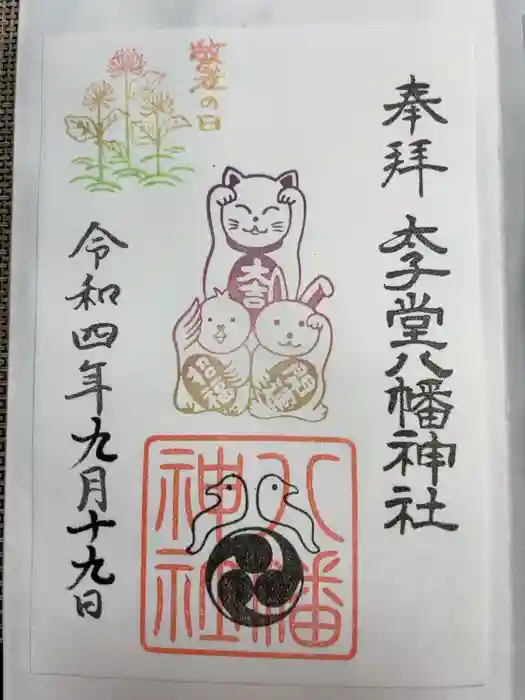 奉拝
太子堂八幡神社
敬老の日
大吉
招福
令和四年九月十九日
八幡
神社